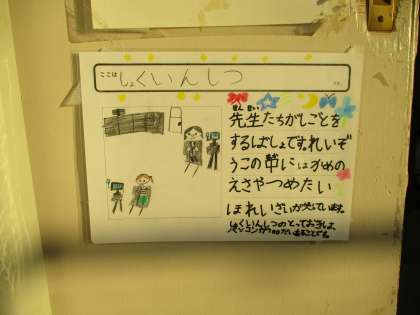 ここは しょくいんしつ です。
せん せい
先生たちがしごとを
するばしょです。れいぞ
うこの中にはかめの
えさやつめたい
ほれいざいが入ています。
しょくいんしつのとっておきは、